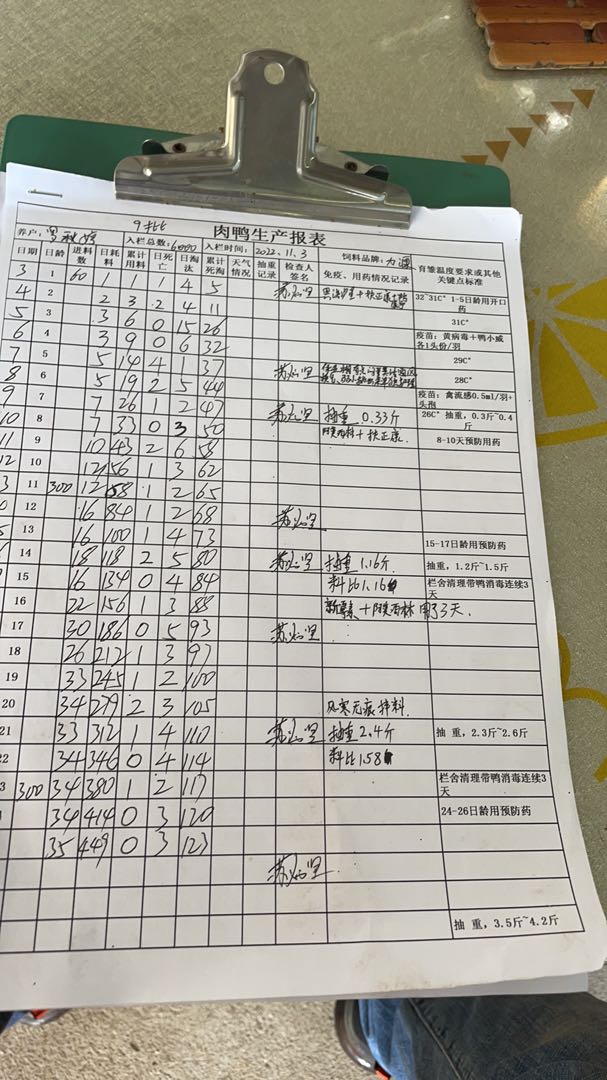 9批
肉鸭生产报表
养户: 入栏总数:6000 入栏时间: 2022.11.3 饲料品牌:
日期 日龄 进料数 日耗料 累计用料 日死亡 日淘汰 累计死淘 天气情况 抽重记录 检查人签名 免疫、用药情况记录 育雏温度要求或其他关键点标准
3 1 60 1 1 1 4 5 32~31C° 1-5日龄用开口药
4 2 2 3 2 4 11 31C°
5 3 3 6 0 15 26
6 4 3 9 0 6 32 疫苗: 黄病毒+鸭小威各1头份/羽
7 5 5 14 4 1 37 29C°
8 6 5 19 2 5 44 28C°
9 7 7 26 1 2 47 疫苗: 禽流感0.5ml/羽+头孢
10 8 7 33 0 3 50 抽重 0.33斤 26C° 抽重, 0.3斤~0.4斤
11 9 10 43 2 6 58 +扶正康 8-10天预防用药
12 10 12 56 1 3 62
11 300 12 68 1 2 65
12 16 84 1 2 68
13 16 100 1 4 73 15-17日龄用预防药
14 18 118 2 5 80 抽重 1.16斤 抽重, 1.2斤~1.5斤
15 16 134 0 4 84 料比1.16 栏舍清理带鸭消毒连续3天
16 22 156 1 3 88 用3天.
17 30 186 0 5 93
18 26 212 1 3 97
19 33 245 1 2 100
20 34 279 2 3 105 风寒无痕拌料.
21 33 312 1 4 110 抽重2.4斤 抽 重, 2.3斤~2.6斤
22 34 346 0 4 114 料比1.58
300 34 380 1 2 117 栏舍清理带鸭消毒连续3天
34 414 0 3 120 24-26日龄用预防药
35 449 0 3 123
抽 重, 3.5斤~4.2斤